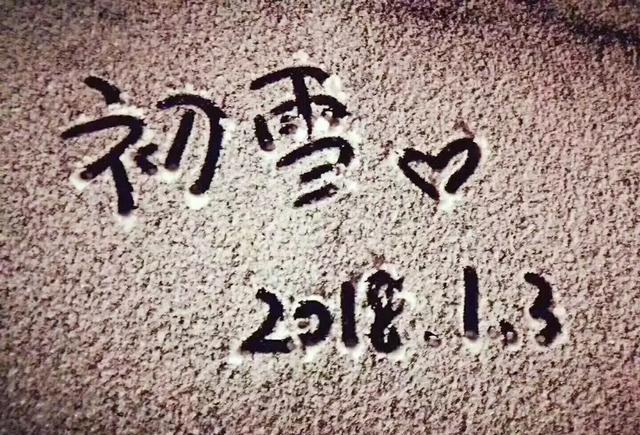 初雪♡
2018.1.3